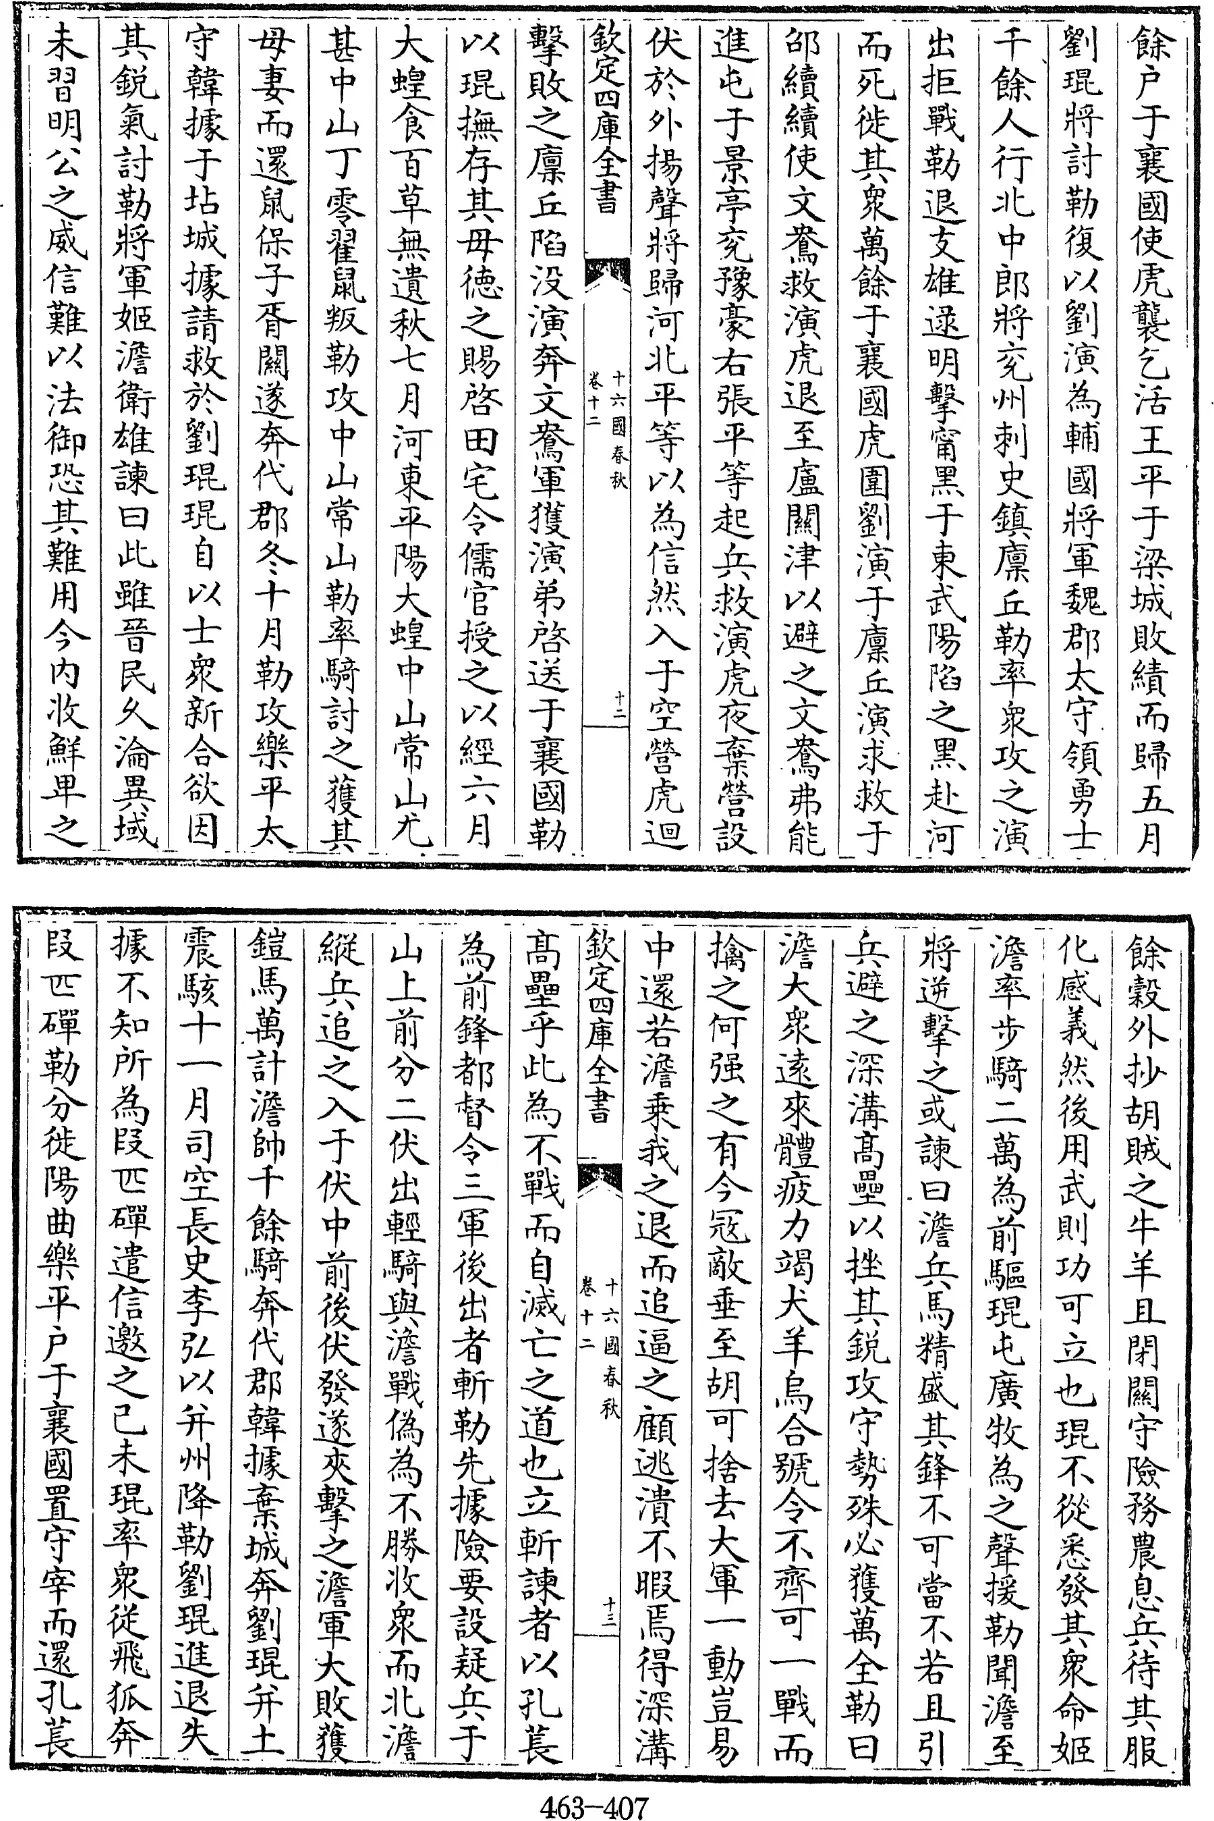 餘户于襄國使虎襲乞活王平于梁城敗績而歸五月
劉琨將討勒復以劉演為輔國將軍魏郡太守領勇士
千餘人行北中郎將兖州刺史鎮廪丘勒率衆攻之演
出拒戰勒退支雄逯明擊甯黑于東武陽陷之黑赴河
而死徙其衆萬餘于襄國虎圍劉演于廪丘演求救于
邵續續使文鴦救演虎退至盧關津以避之文鴦弗能
進屯于景亭兖豫豪右張平等起兵救演虎夜棄營設
伏於外揚聲將歸河北平等以為信然入于空營虎迴
欽定四庫全書
十六國春秋
卷十二
十二
擊敗之廪丘陷没演奔文鴦軍獲演弟啓送于襄國勒
以琨撫存其母德之賜啓田宅令儒官授之以經六月
大蝗食百草無遺秋七月河東平陽大蝗中山常山尤
甚中山丁零翟鼠叛勒攻中山常山勒率騎討之獲其
母妻而還鼠保于胥關遂奔代郡冬十月勒攻樂平太
守韓據于坫城據請救於劉琨琨自以士衆新合欲因
其鋭氣討勒將軍姬澹衛雄諫曰此雖晉民久淪異域
未習明公之威信難以法御恐其難用今内收鮮卑之
餘穀外抄胡賊之牛羊且閉關守險務農息兵待其服
化感義然後用武則功可立也琨不從悉發其衆命姬
澹率步騎二萬為前驅琨屯廣牧為之聲援勒聞澹至
將逆擊之或諫曰澹兵馬精盛其鋒不可當不若且引
兵避之深溝髙壘以挫其鋭攻守勢殊必獲萬全勒曰
澹大衆逺來體疲力竭犬羊烏合號令不齊可一戰而
擒之何强之有今冦敵垂至胡可捨去大軍一動豈易
中還若澹乗我之退而追逼之顧逃潰不暇焉得深溝
欽定四庫全書
十六國春秋
卷十二
十三
髙壘乎此為不戰而自滅亡之道也立斬諫者以孔萇
為前鋒都督令三軍後出者斬勒先據險要設疑兵于
山上前分二伏出輕騎與澹戰偽為不勝收衆而北澹
縱兵追之入于伏中前後伏發遂夾擊之澹軍大敗獲
鎧馬萬計澹帥千餘騎奔代郡韓據棄城奔劉琨并土
震駭十一月司空長史李弘以并州降勒劉琨進退失
據不知所為叚匹磾遣信邀之己未琨率衆從飛狐奔
叚匹磾勒分徙陽曲樂平户于襄國置守宰而還孔萇
463-407